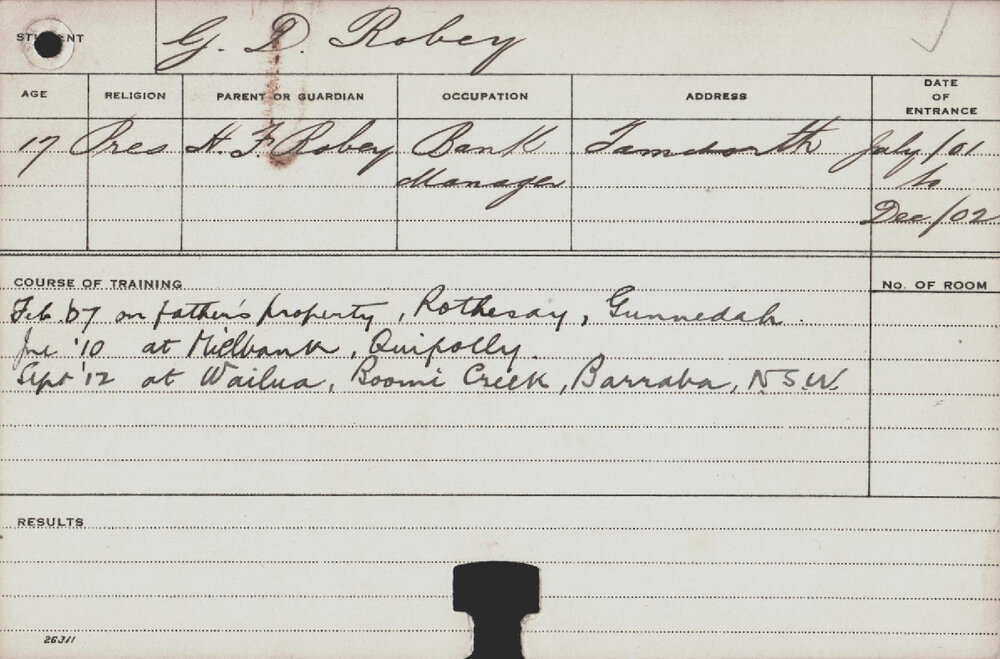 STUDENT G. D. Robey
AGE RELIGION PARENT OR GUARDIAN OCCUPATION ADDRESS DATE OF ENTRANCE
17 Pres H. F. Robey Bank Tamworth July/01
Manager to
Dec/02
COURSE OF TRAINING No. OF ROOM
Feb. '07 on father's property, Rothesay, Gunnedah.
Jne '10 at Millbank, Quipolly.
Sept '12 at Wailua, Boomi Creek, Barraba, N.S.W.
RESULTS
26311